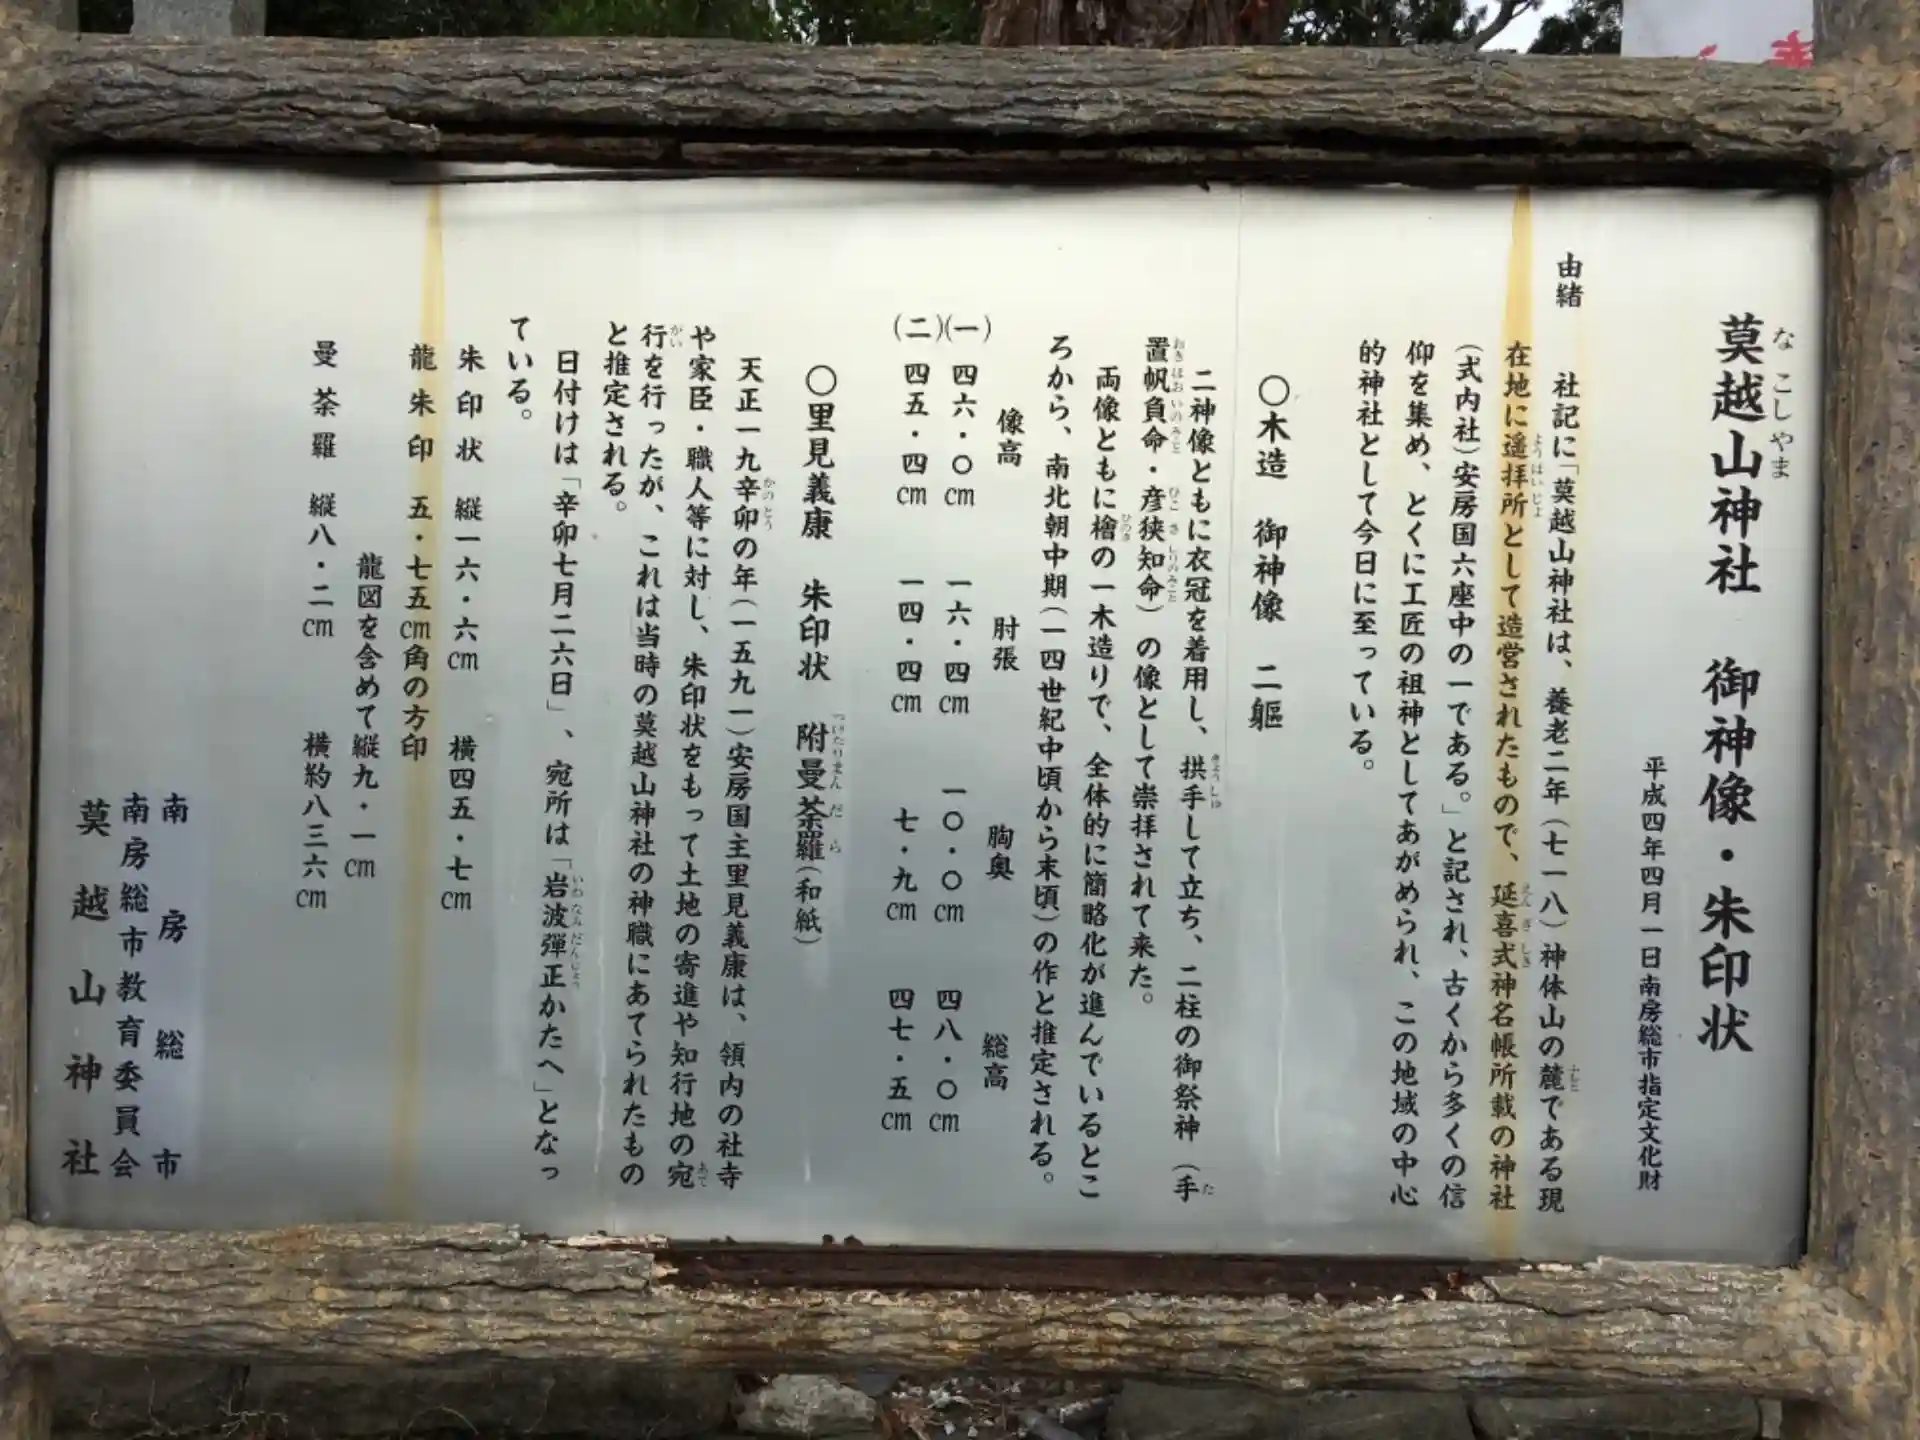 莫越山神社　御神像・朱印状
なこしやま
平成四年四月一日南房総市指定文化財
由緒
社記に「莫越山神社は、養老二年(七一八)神体山の麓である現
ふもと
在地に遥拝所として造営されたもので、延喜式神名帳所載の神社
ようはいじよ
えんぎしき
(式内社)安房国六座中の一である。」と記され、古くから多くの信
仰を集め、とくに工匠の祖神としてあがめられ、この地域の中心
的神社として今日に至っている。
〇木造　御神像　二軀
二神像ともに衣冠を着用し、拱手して立ち、二柱の御祭神(手
きょうしゅ
た
置帆負命・彦狭知命)の像として崇拝されて来た。
おきほおいのみこと
ひこさしりのみこと
両像ともに檜の一木造りで、全体的に簡略化が進んでいるとこ
ひのき
ろから、南北朝中期(一四世紀中頃から末頃)の作と推定される。
像高　肘張　胸奥　総高
(一)四六・〇cm　一六・四cm　一〇・〇cm　四八・〇cm
(二)四五・四cm　一四・四cm　七・九cm　四七・五cm
〇里見義康　朱印状　附曼荼羅(和紙)
つけたりまんだら
天正一九辛卯の年(一五九一)安房国主里見義康は、領内の社寺
かのとう
や家臣・職人等に対し、朱印状をもって土地の寄進や知行地の宛
あて
行を行ったが、これは当時の莫越山神社の神職にあてられたもの
がい
と推定される。
日付けは「辛卯七月二六日」、宛所は「岩波弾正かたへ」となっ
いわなみだんじょう
ている。
朱印状　縦一六・六cm　横四五・七cm
龍朱印　五・七五cm角の方印
龍図を含めて縦九・一cm
曼荼羅　縦八・二cm　横約八三六cm
南房総市
南房総市教育委員会
莫越山神社